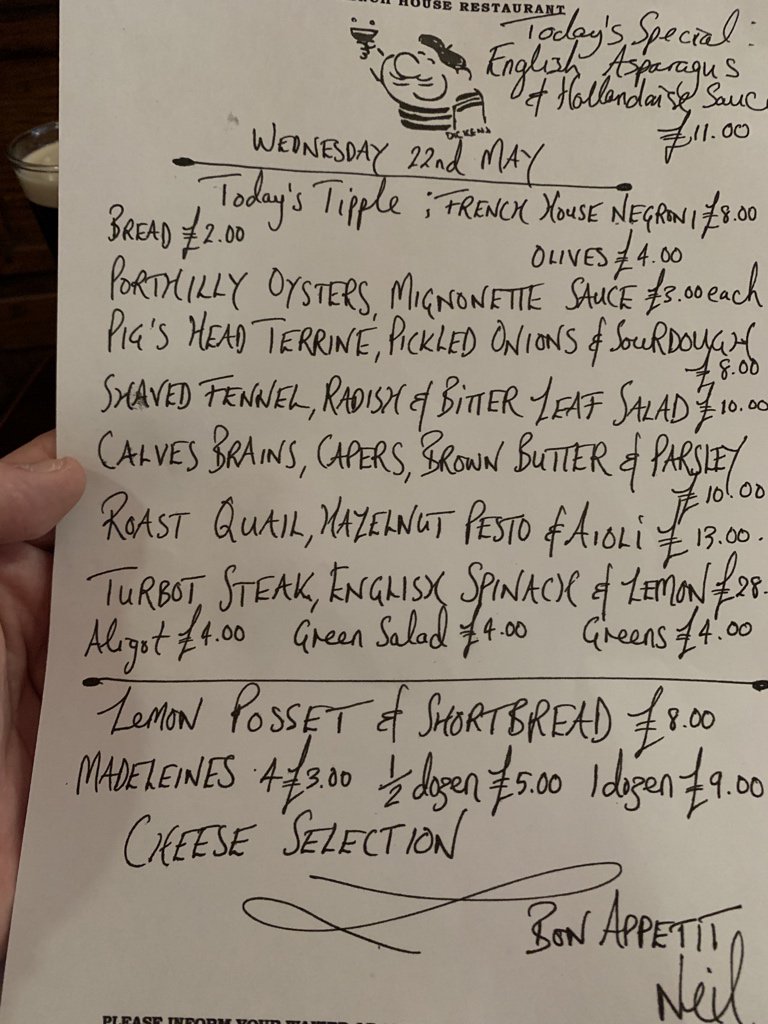 HOUSE RESTAURANT
Today's Special:
English Asparagus
& Hollandaise Sauc
£11.00
DICKENS
WEDNESDAY 22nd MAY
Today's Tipple ; FRENCH HOUSE NEGRONI £8.00
BREAD £2.00
OLIVES £4.00
PORTHILLY OYSTERS, MIGNONETTE SAUCE £3.00 each
PIG'S HEAD TERRINE, PICKLED ONIONS & SOURDOUGH
£8.00
SHAVED FENNEL, RADISH & BITTER LEAF SALAD £10.00
CALVES BRAINS, CAPERS, BROWN BUTTER & PARSLEY
£10.00
ROAST QUAIL, HAZELNUT PESTO & AIOLI £13.00.
TURBOT STEAK, ENGLISH SPINACH & LEMON £28.
Aligot £4.00 Green Salad £4.00 Greens £4.00
LEMON POSSET & SHORTBREAD £8.00
MADELEINES 4 £3.00 ½ dozen £5.00 1 dozen £9.00
CHEESE SELECTION
BON APPETIT
Neil
PLEASE INFORM YOUR WAITER